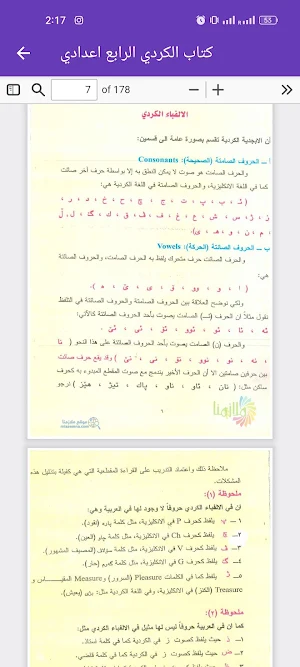 2:17
55
كتاب الكردي الرابع اعدادي
7 of 178
الالفباء الكردي
أن الابجدية الكردية تقسم بصورة عامة الى قسمين:
أ ــ الحروف الصامتة (الصحيحة): Consonants
والحرف الصامت هو صوت لا يمكن النطق به إلا بواسطة حرف آخر صائت
كما في اللغة الانكليزية، والحروف الصامتة في اللغة الكردية هي:
( ئـ ، ب ، پ ، ت ، ج ، چ ، ح ، خ ، د ، ر ،
ز ، ژ ، س ، ش ، ع ، غ ، ف ، ڤ ، ق ، ك ، گ ، ل ، ڵ
، م ، ن ، و ، هـ ، ى).
ب ــ الحروف الصائتة (الحركة): Vowels
والحرف الصائت حرف متحرك يلفظ به الحرف الصامت، والحروف الصائتة
هي:
( ا ، و ، وو ، ۆ ، ى ، ێ ، ه ).
ولكي نوضح العلاقة بين الحروف الصامتة والحروف الصائتة في التلفظ
نقول مثلاً ان الحرف (ئــ) الصامت يصوت بأحد الحروف الصائتة كالآتي:
ئه ، ئا ، ئو ، ئوو ، ئۆ ، ئى ، ئێ .
والحرف (ن) الصامت يصوت بأحد الحروف الصائتة على هذا النحو ( نا
، نه ، نو ، نوو ، نۆ ، نى ، نێ ) وقد يقع حرف صائت
بين حرفين صامتين الا أن الحرف الأخير يندمج مع صوت المقطع المبدوء به كحرف
ساكن مثل: ( نان ، ئاو ، ناو ، پاك ، تيژ ، هێز ) نرجو
٦
ملاحظة ذلك واعتماد التدريب على القراءة المقطعية التي هي كفيلة بتذليل هذه
المشكلات.
ملحوظة (١):
ان في الالفباء الكردي حروفاً لا وجود لها في العربية وهي:
١ــ پ يلفظ كحرف P في الانكليزية، مثل كلمة پاره (نقود).
٢ــ چ يلفظ كحرف Ch في الانكليزية، مثل كلمة چاو (العين).
٣ــ ڤ يلفظ كحرف V في الانكليزية، مثل كلمة سۆلاڤ (المصيف المشهور).
٤ــ گ يلفظ كحرف G في الانكليزية، مثل كلمة گەرم (حار).
٥ــ ژ يلفظ كما في الكلمات Pleasure (السرور) و Measure المقياس و
Treasure (الكنز) في الانكليزية، وفي اللغة الكردية مثل: ژى (يعيش).
ملحوظة (٢):
كما ان في العربية حروفاً ليس لها مثيل في الألفباء الكردي مثل:
١ــ ذ حيث يلفظ كصوت ز في الكردية كما في كلمة استاذ.
٢ــ ض حيث يلفظ كصوت ز في الكردية كما في كلمة قاضي.